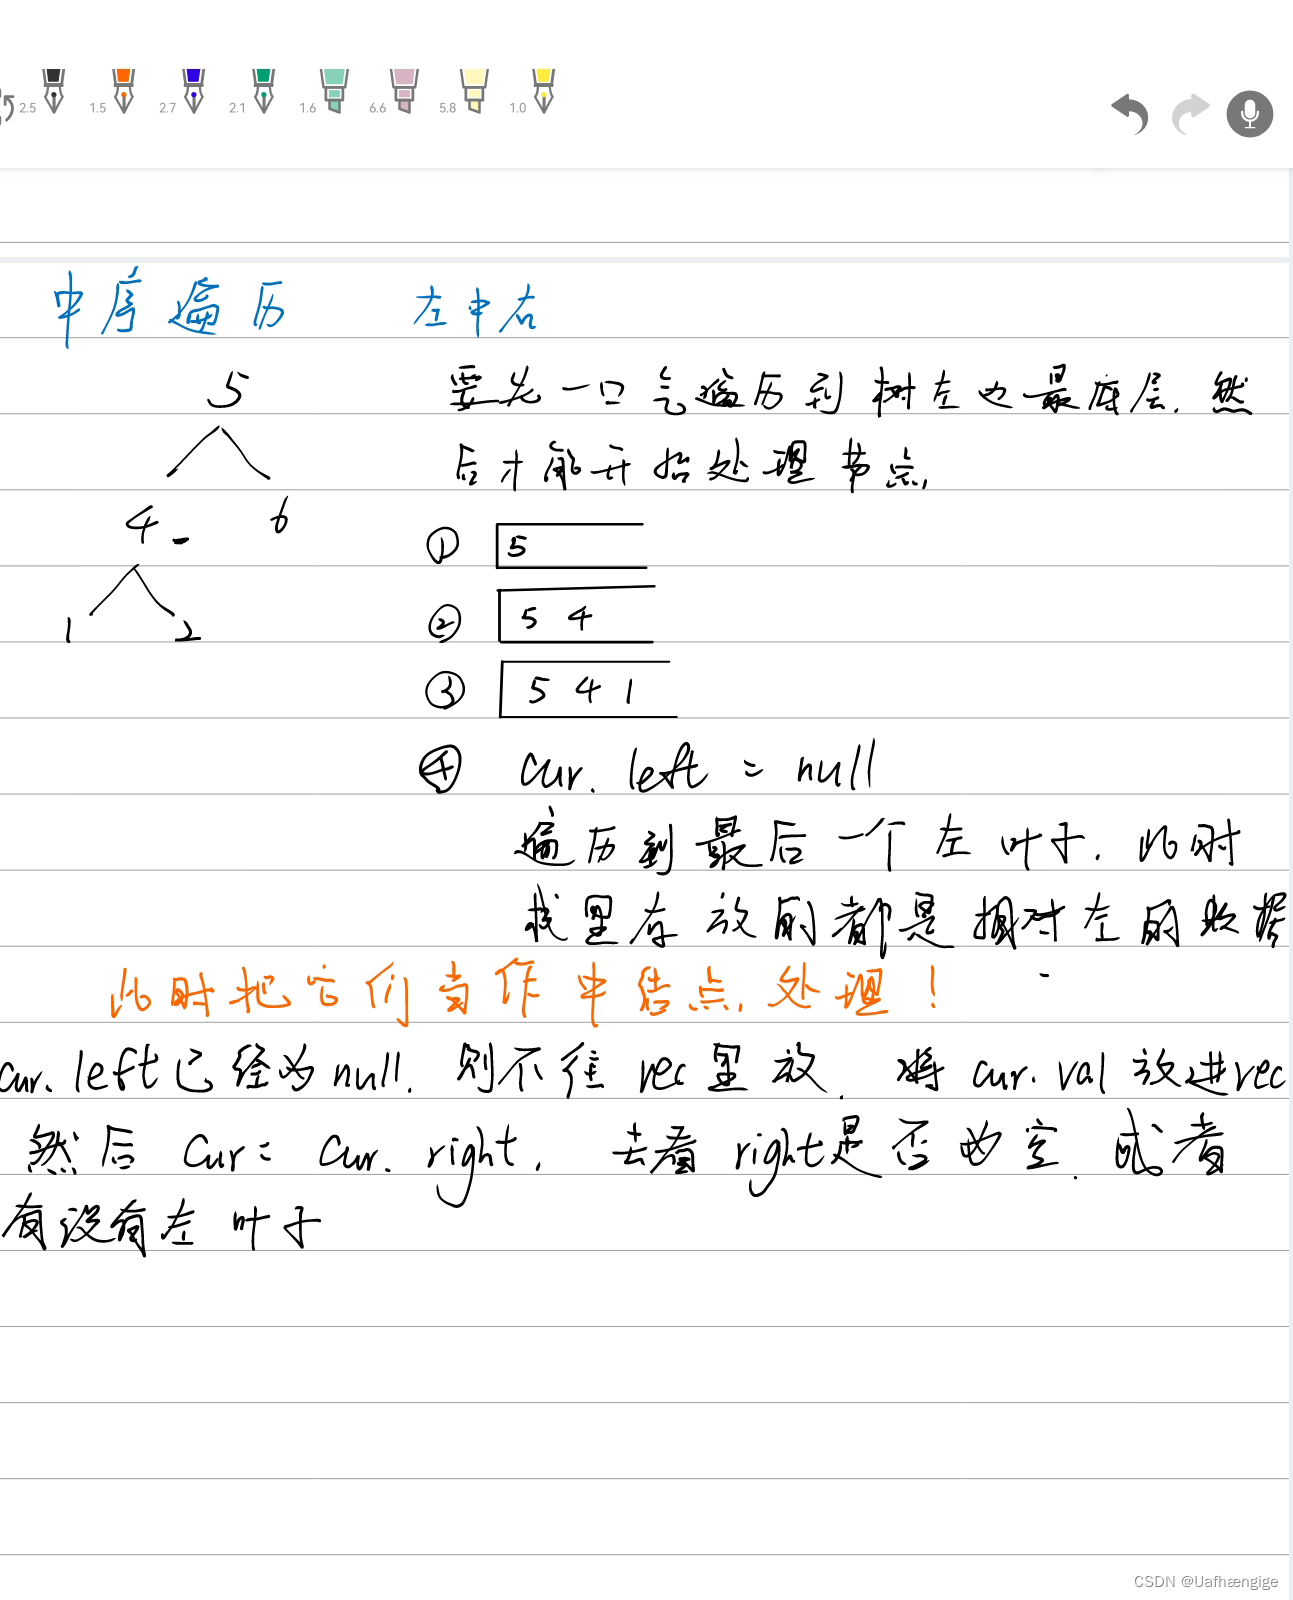 2.5 1.5 2.7 2.1 1.6 6.6 5.8 1.0
中序遍历 左中右
5
要先一口气遍历到树左边最底层.然
后才能开始处理节点.
4 6
① 5
1 2
② 5 4
③ 5 4 1
④ cur.left = null
遍历到最后一个左叶子.此时
栈里存放的都是相对左的数据
此时把它们当作中结点.处理!
cur.left已经为null.则不往vec里放.将cur.val放进vec
然后 cur = cur.right, 去看right是否为空.或者
有没有左叶子
CSDN @Uafhængige